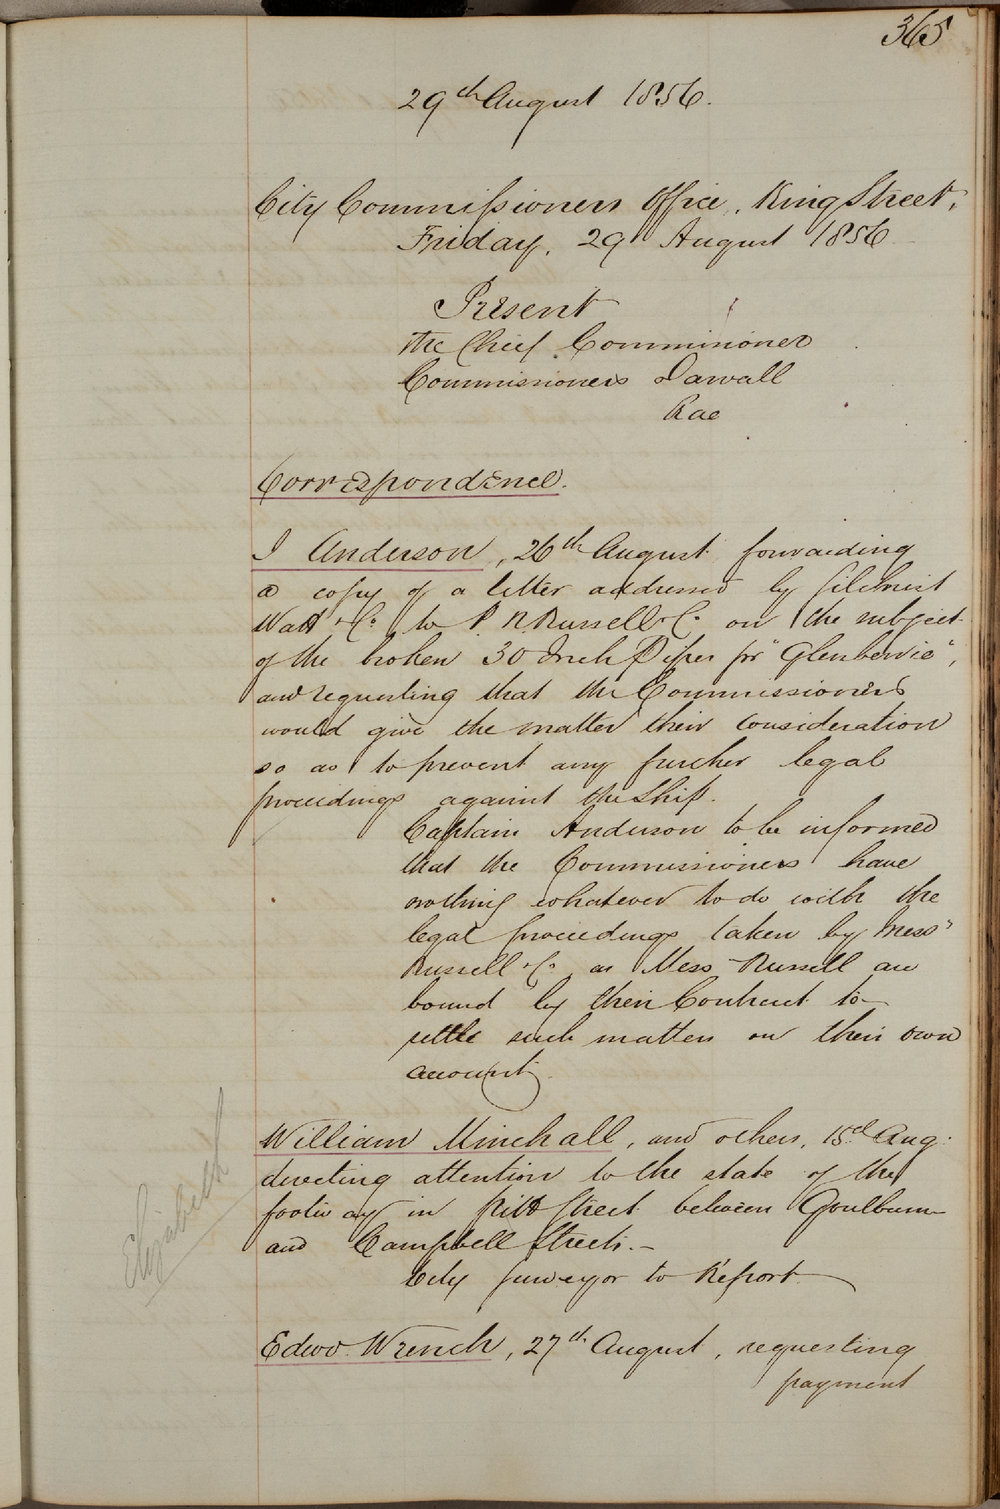 365
29th August 1856.
City Commissioners Office, King Street,
Friday, 29 August 1856
Present
The Chief Commissioner
Commissioners Darvall
Rae
Correspondence.
J Anderson, 26th August forwarding
a copy of a letter addressed by Gilchrist
Watt & Co to P. N. Russell & Co on the subject
of the broken 30 Inch Pipes pr "Glenbervie",
and requesting that the Commissioners
would give the matter their consideration
so as to prevent any further legal
proceedings against the Ship.
Captain Anderson to be informed
that the Commissioners have
nothing whatever to do with the
legal proceedings taken by Mess"
Russell & Co as Mess Russell are
bound by their Contract to
settle such matters on their own
account.
William Minchall, and others, 15th Aug.
directing attention to the state of the
footway in Pitt Street between Goulburn
and Campbell Streets. -
City Surveyor to Report
Elizabeth
Edwd. Wrench, 27th August, requesting
payment